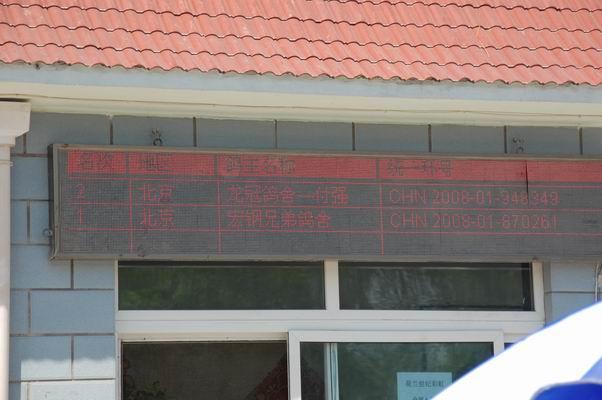 名次 地区 鸽主名称 统一环号
2 北京 龙冠鸽舍—付强 CHN 2008-01-948349
1 北京 宏钢兄弟鸽舍 CHN 2008-01-870261
荷兰世纪彩虹